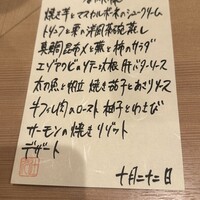 焼き芋とマスカルポーネのシュークリーム
トリュフと栗の洋風茶碗蒸し
真鯛昆布〆と蕪と柿のサラダ
エゾアワビのソテーと大根 肝バターソース
太刀魚と帆立 焼き茄子とあさりソース
牛フィレ肉のロースト 柚子とわさび
サーモンの焼きリゾット
デザート
十月二十二日